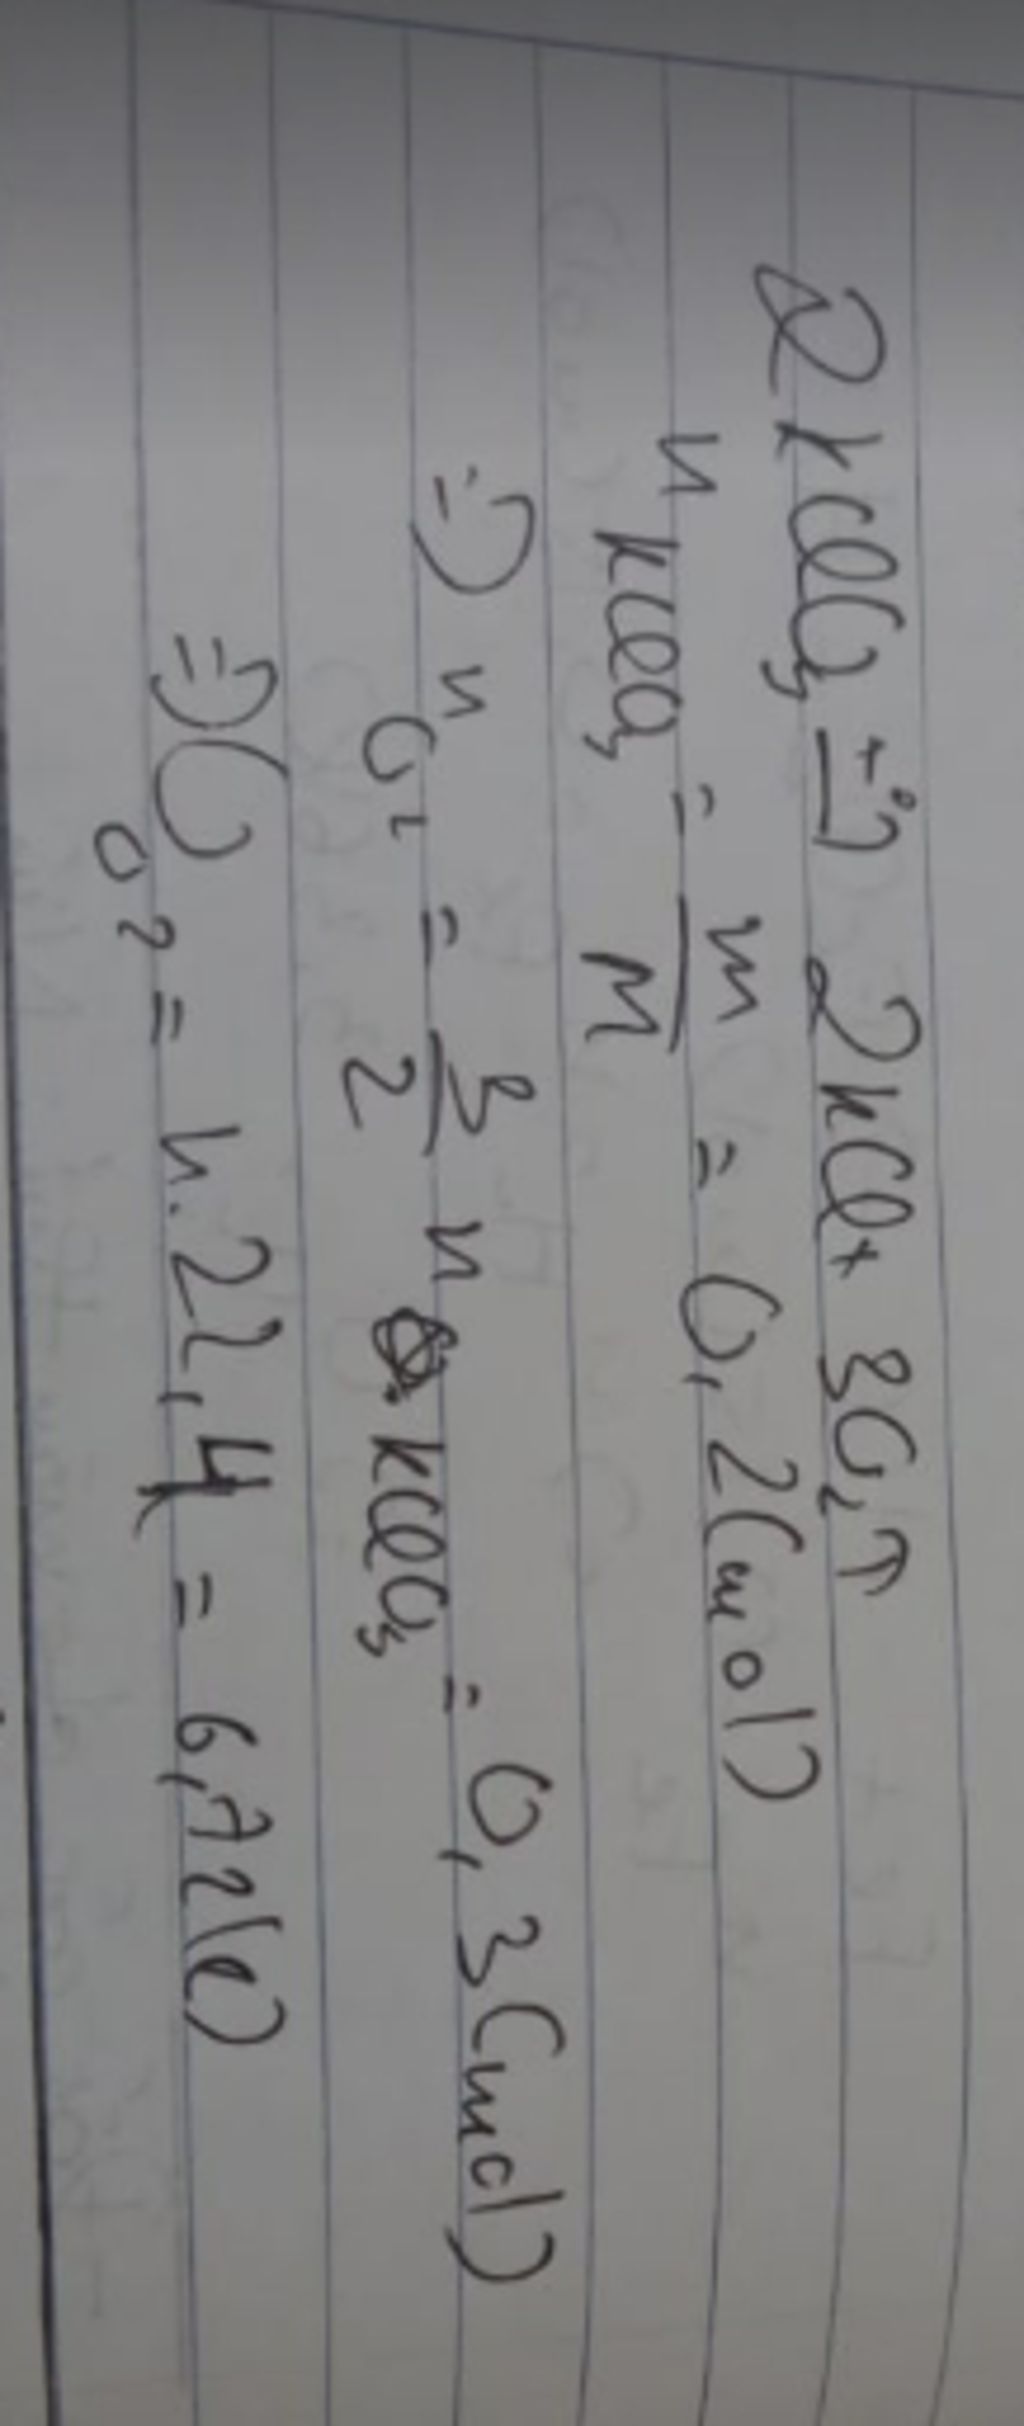 2KClO₃ →(t°) 2KCl + 3O₂↑
n KClO₃ = m/M = 0,2(mol)
=> n O₂ = 3/2 n KClO₃ = 0,3(mol)
=> V O₂ = n.22,4 = 6,72(l)